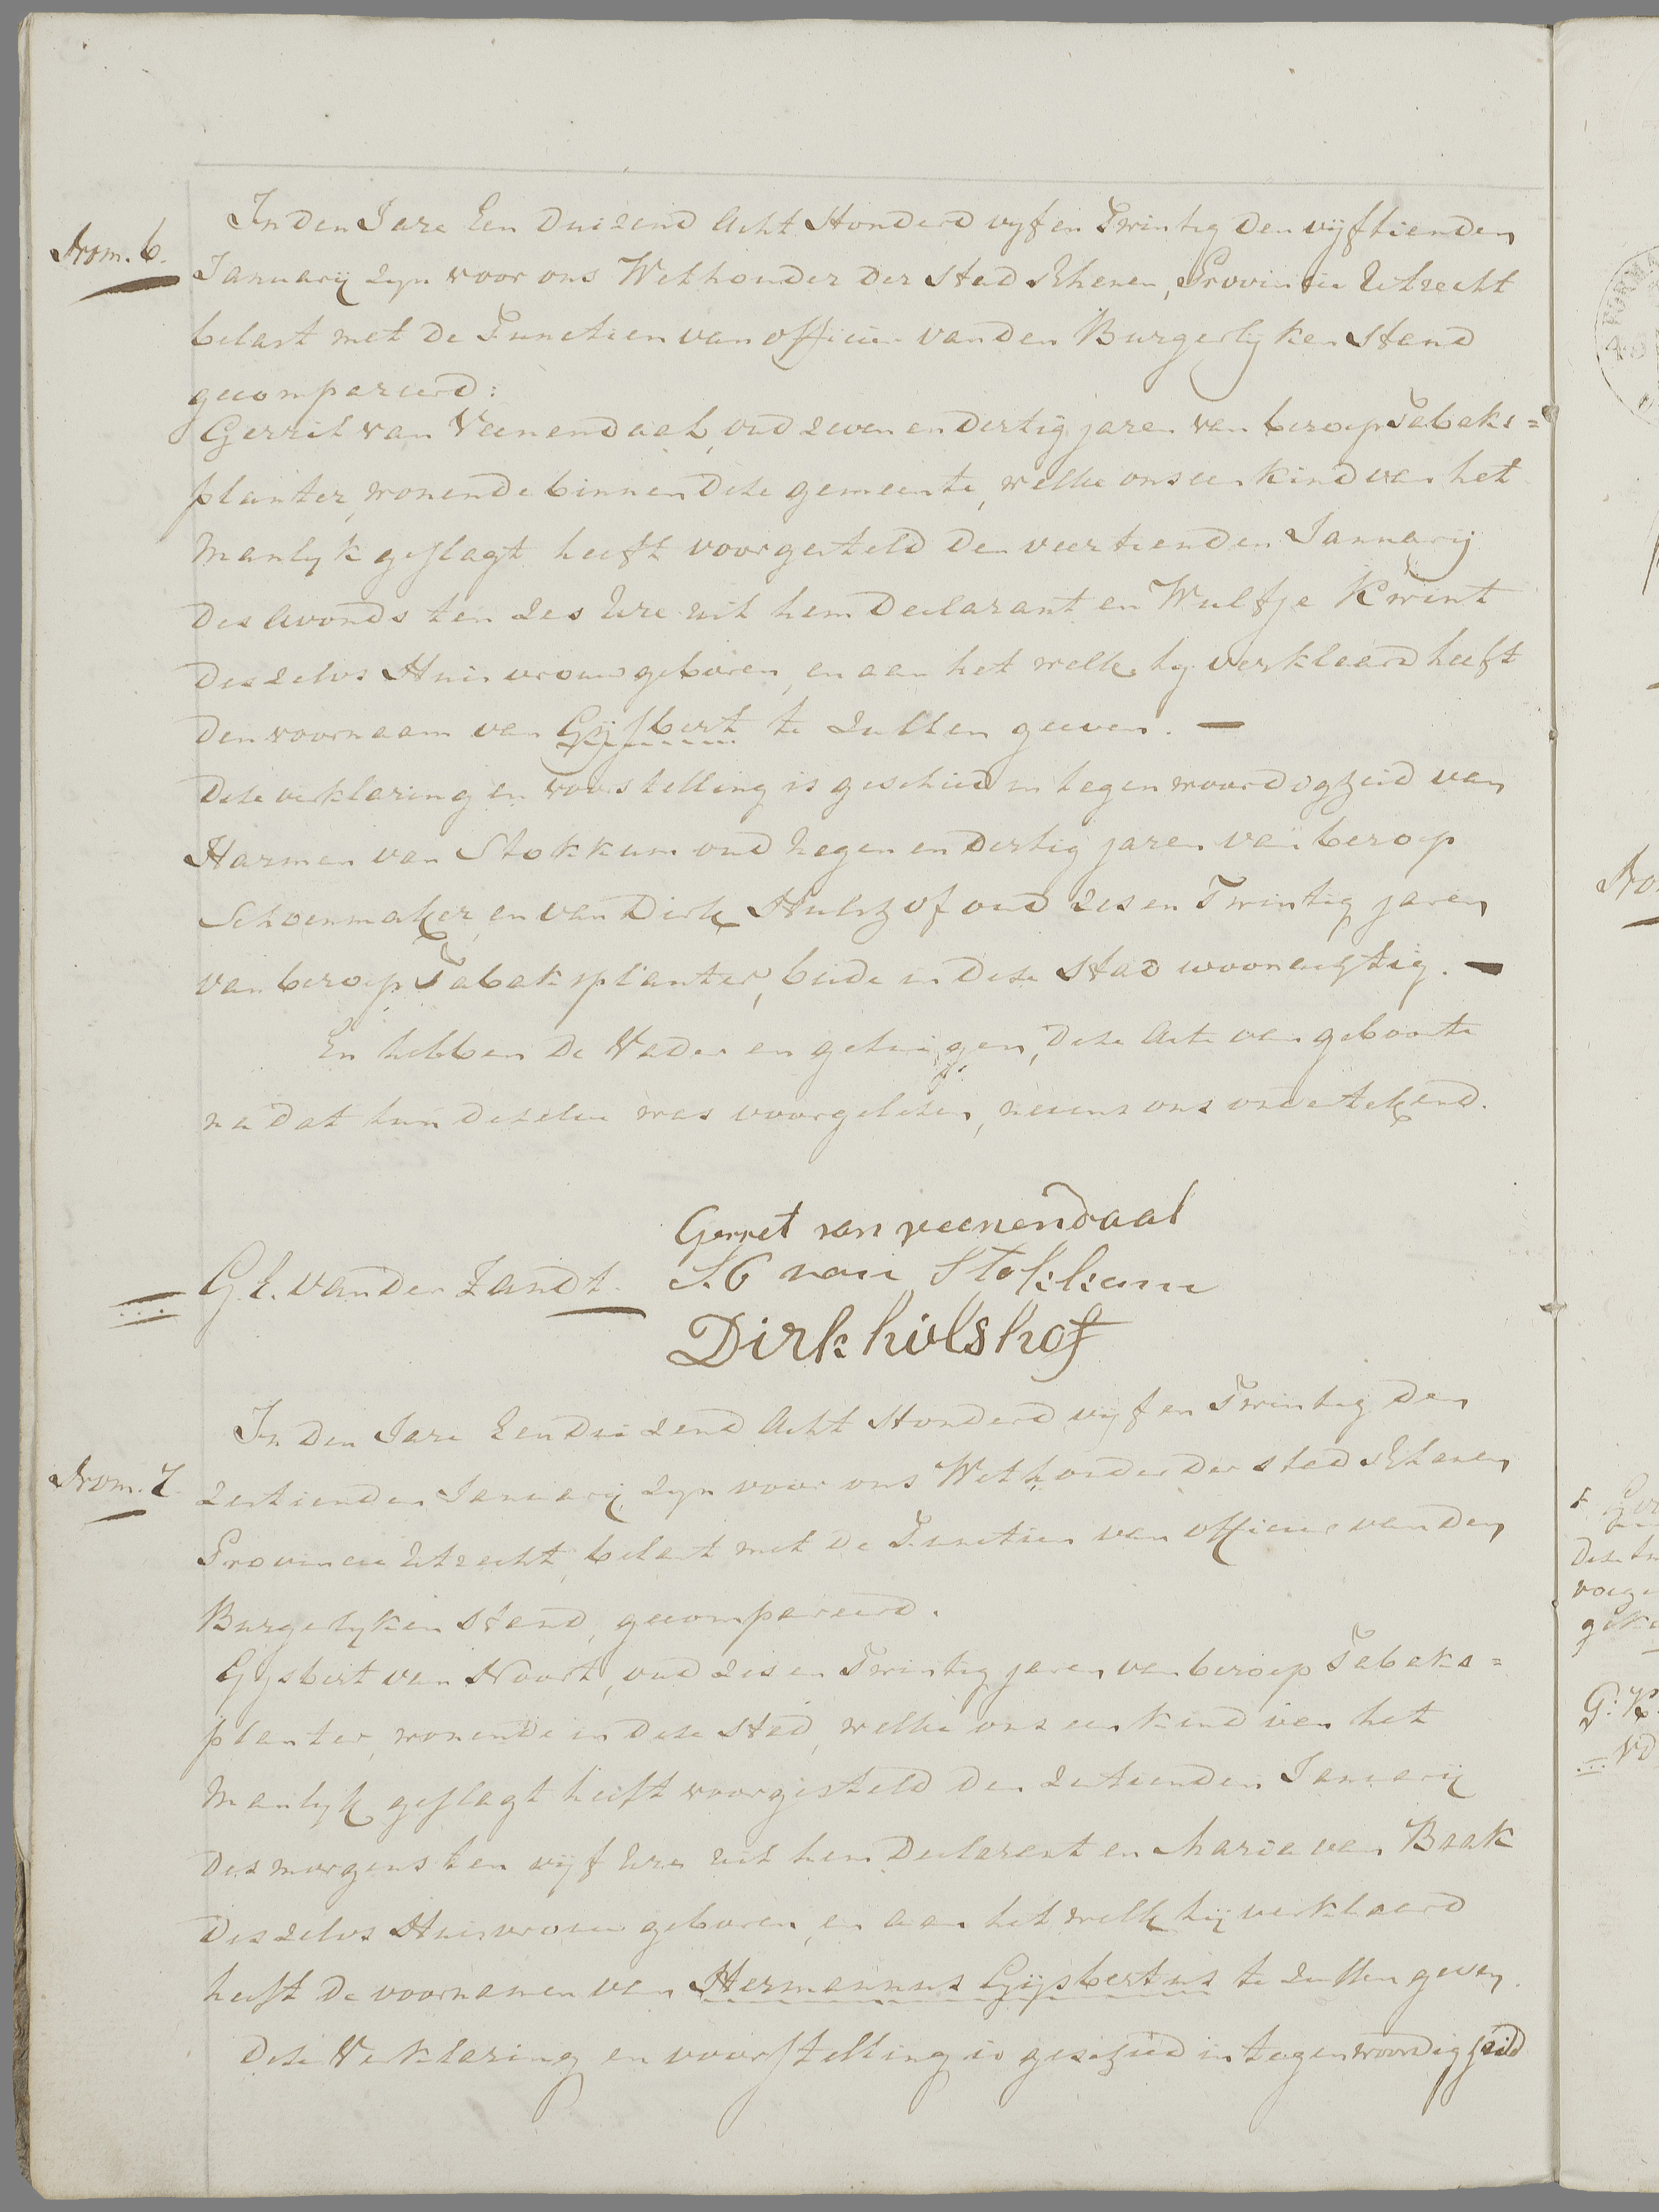 Nrom. 6.
In den Jare Een Duizend Acht Honderd vyf en Twintig den vijftienden
Januarij zyn voor ons Wethouder der Stad Rhenen, Provintie Utrecht
belast met de Functien van officier van den Burgerlyken Stand
gecompareerd:
Gerrit van Veenendaal, oud zeven en dertig jaren van beroep Tabaks=
planter, wonende binnen deze gemeente, welke ons een kind van het
Manlyk geslagt heeft voorgesteld den veertienden Januarij
des Avonds ten zes Ure uit hem Declarant en Wulfje Kwint
deszelvs Huisvrouw geboren, en aan het welk hy verklaard heeft
den voornaam van Gijsbert te zullen geeven. —
Deze verklaring en voorstelling is geschied in tegenwoordigheid van
Harmen van Stokkum oud negen en dertig jaren van beroep
Schoenmaker, en van Dirk Hulshof oud zes en Twintig jaren
van beroep Tabaksplanter, beide in deze Stad woonachtig. —
En hebben de Vader en getuigen, deze Acte van geboorte
na dat hun dezelve was voorgelezen, nevens ons ondertekend.
Gerret van veenendaal
G. E. van der Zandt. van Stokkum
Dirk hulshof
Nrom. 7
In den Jare Een Duizend Acht Honderd vyf en Twintig den
zestienden Januarij zyn voor ons Wethouder der Stad Rhenen
Provincie Utrecht, belast met de Functien van officier van den
Burgerlyken Stand, gecompareerd.
Gysbert van Noort, oud zes en Twintig jaren van beroep Tabaks=
planter, wonende in deze Stad, welke ons een kind van het
Manlyk geslagt heeft voorgesteld den zestienden Januarij
des morgens ten vyf Ure uit hem Declarant en Maria van Baak
deszelvs Huisvrouw geboren, en aan het welk hij verklaard
heeft de voornamen van Hermannus Gijsbertus te zullen geven.
Deze Verklaring en voorstelling is geschied in tegenwoordigheid